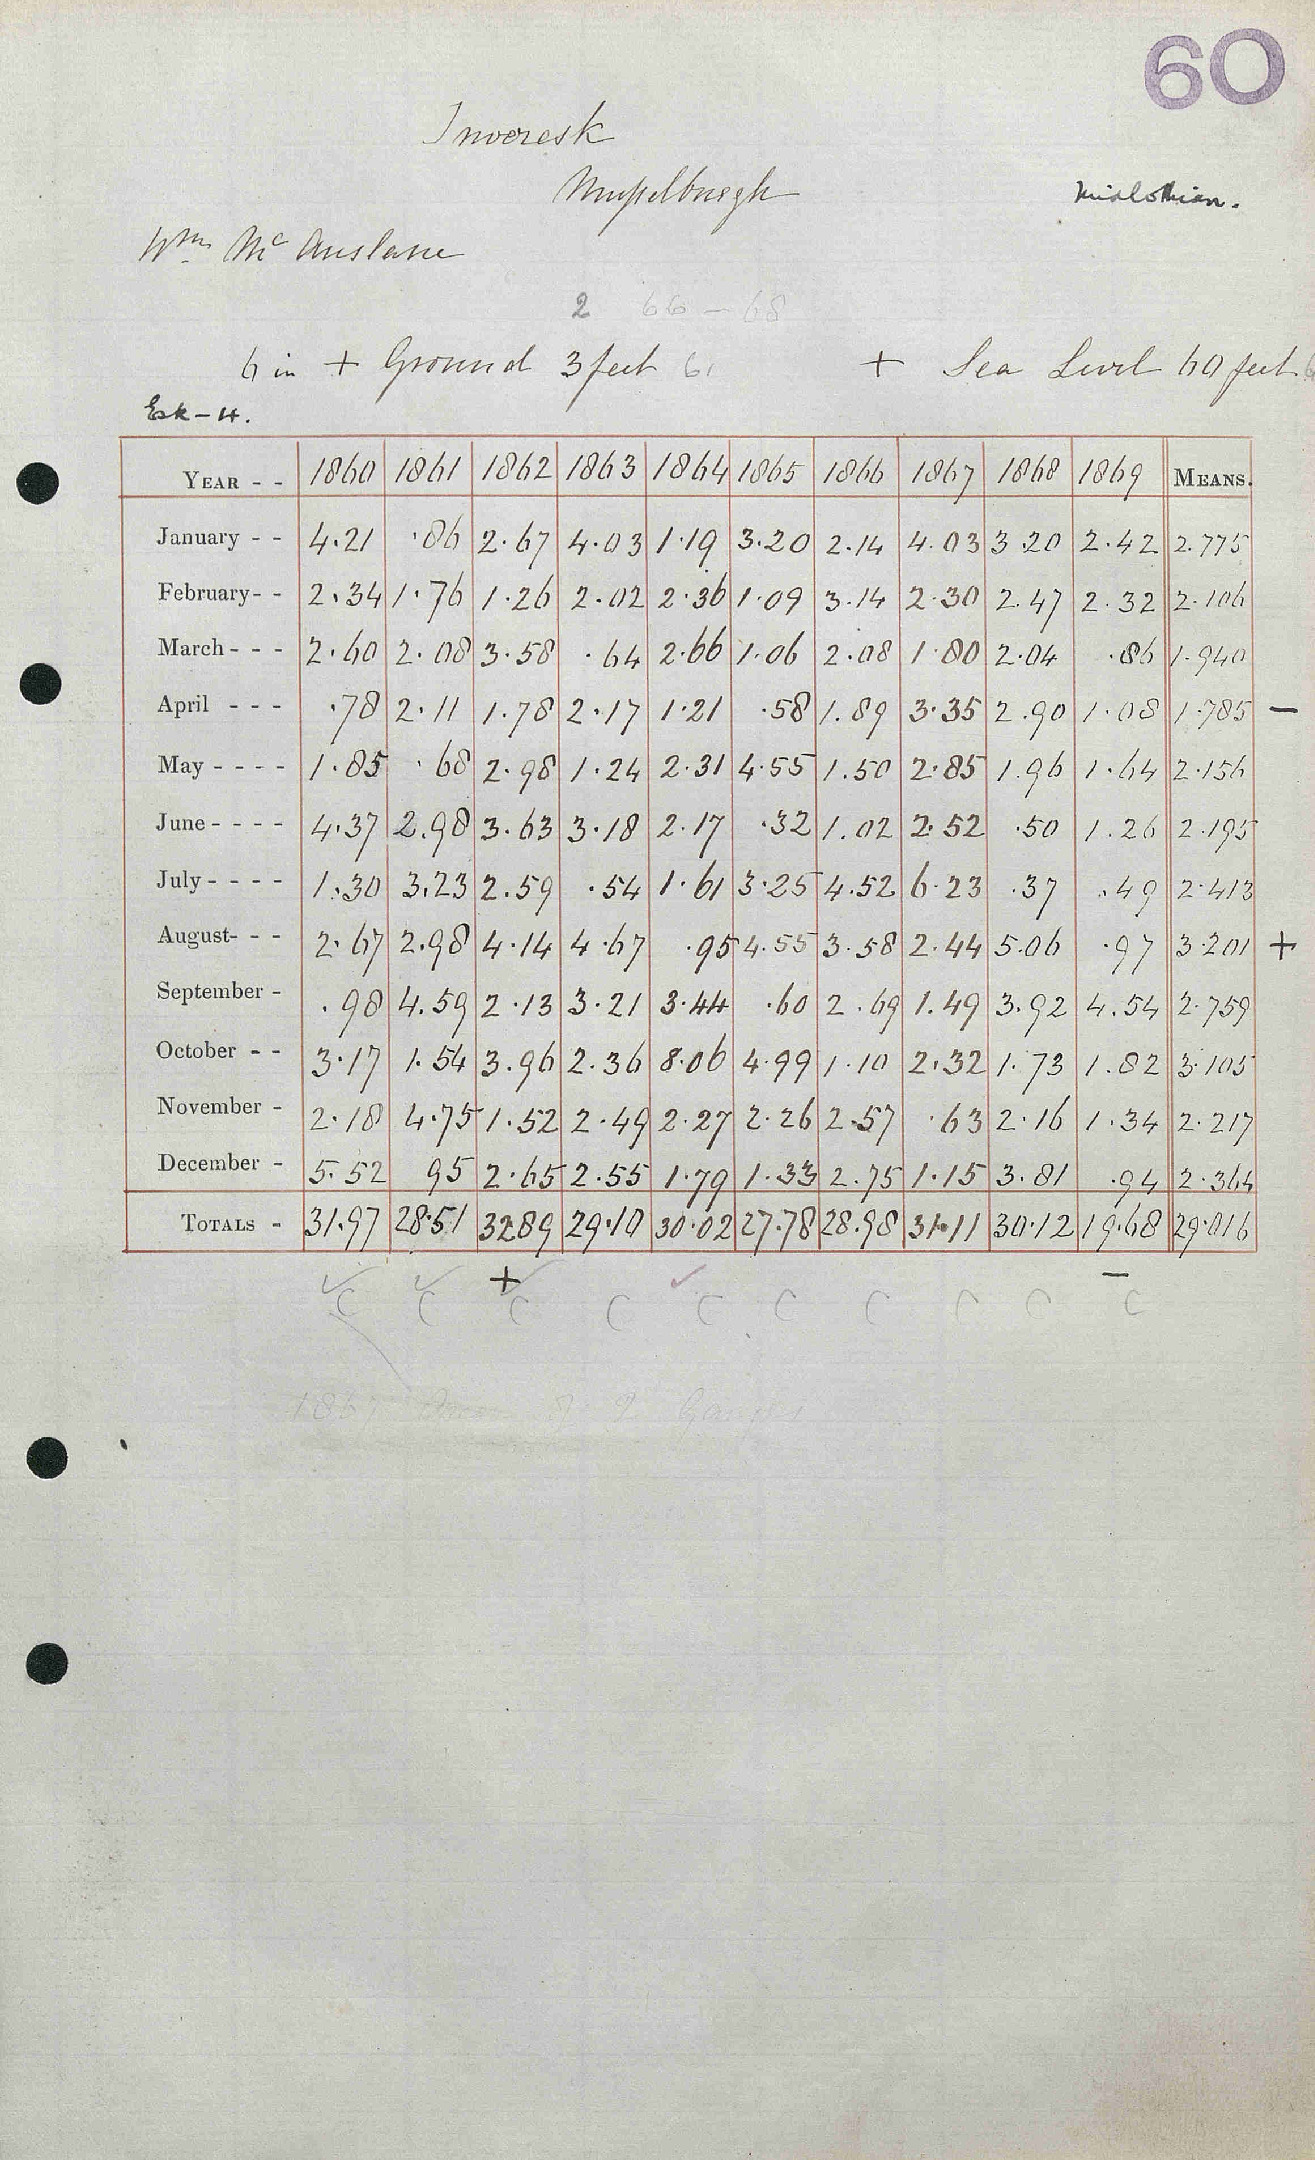 60
Inveresk
Musselburgh
Midlothian.
Wm Mc Auslane
2 66-68
6 in + Ground 3 feet 61 + Sea Level 60 feet.
Esk-4.
YEAR - - 1860 1861 1862 1863 1864 1865 1866 1867 1868 1869 MEANS.
January - - 4.21 .86 2.67 4.03 1.19 3.20 2.14 4.03 3.20 2.42 2.775
February- - 2.34 1.76 1.26 2.02 2.36 1.09 3.14 2.30 2.47 2.32 2.106
March - - - 2.60 2.08 3.58 .64 2.66 1.06 2.08 1.80 2.04 .86 1.940
April - - - .78 2.11 1.78 2.17 1.21 .58 1.89 3.35 2.90 1.08 1.785 -
May - - - - 1.85 .68 2.98 1.24 2.31 4.55 1.50 2.85 1.96 1.64 2.156
June - - - - 4.37 2.98 3.63 3.18 2.17 .32 1.02 2.52 .50 1.26 2.195
July - - - - 1.30 3.23 2.59 .54 1.61 3.25 4.52 6.23 .37 .49 2.413
August- - - 2.67 2.98 4.14 4.67 .95 4.55 3.58 2.44 5.06 .97 3.201 +
September - .98 4.59 2.13 3.21 3.44 .60 2.69 1.49 3.92 4.54 2.759
October - - 3.17 1.54 3.96 2.36 8.06 4.99 1.10 2.32 1.73 1.82 3.105
November - 2.18 4.75 1.52 2.49 2.27 2.26 2.57 .63 2.16 1.34 2.217
December - 5.52 95 2.65 2.55 1.79 1.33 2.75 1.15 3.81 .94 2.364
TOTALS - 31.97 28.51 32.89 29.10 30.02 27.78 28.98 31.11 30.12 19.68 29.016
+ -
C C C C C C C C C C
1867 Gauges